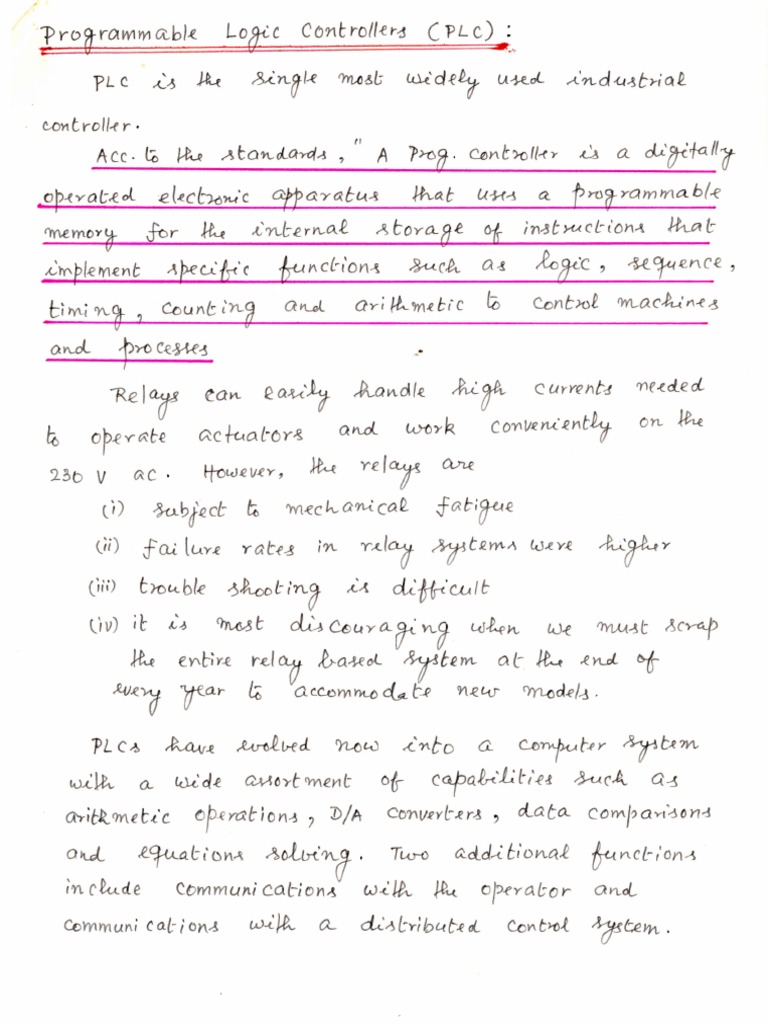 Programmable Logic Controllers (PLC) :
PLC is the single most widely used industrial
controller.
Acc. to the standards, " A Prog. controller is a digitally
operated electronic apparatus that uses a programmable
memory for the internal storage of instructions that
implement specific functions such as logic, sequence,
timing, counting and arithmetic to control machines
and processes
Relays can easily handle high currents needed
to operate actuators and work conveniently on the
230 V ac. However, the relays are
(i) subject to mechanical fatigue
(ii) failure rates in relay systems were higher
(iii) trouble shooting is difficult
(iv) it is most discouraging when we must scrap
the entire relay based system at the end of
every year to accommodate new models.
PLCs have evolved now into a computer system
with a wide assortment of capabilities such as
arithmetic operations, D/A converters, data comparisons
and equations solving. Two additional functions
include communications with the operator and
communications with a distributed control system.